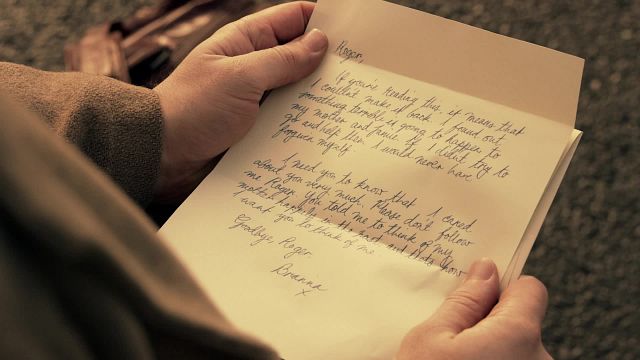 Roger,
If you're reading this, it means that
I couldnt make it back. I found out
something terrible is going to happen to
my mother and Jamie. If I didnt try to
go and help them I would never have
forgiven myself.
I need you to know that I cared
about you very much. Please don't follow
me Roger. You told me to think of my
mother happily in the past and that's how
want you to think of me
Goodbye, Roger.
Brianna
x